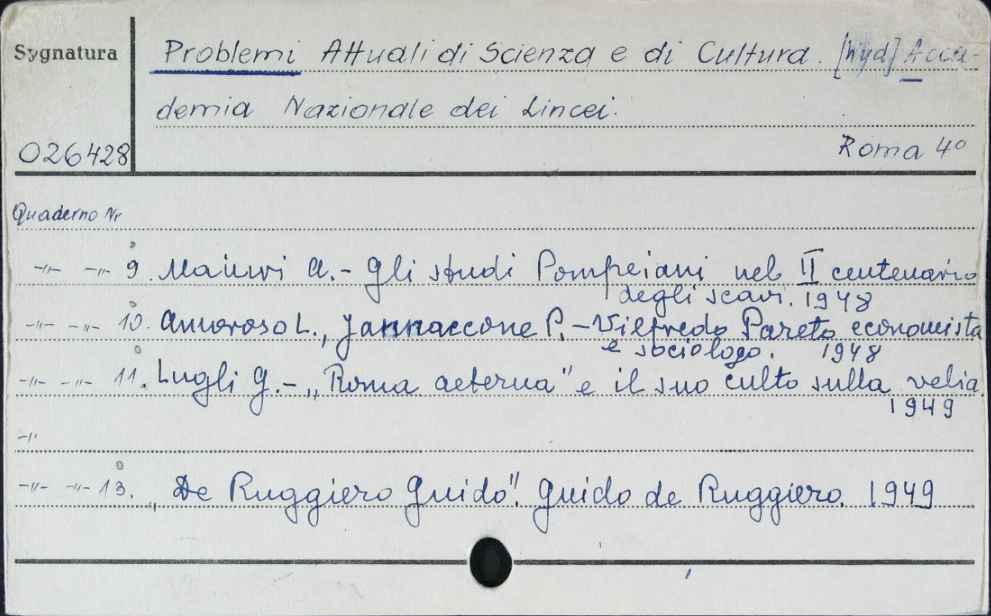 Sygnatura
Problemi Attuali di Scienza e di Cultura. [wyd] Acca-
demia Nazionale dei Lincei.
026428
Roma 4°
Quaderno Nr
-"- -"- 9. Maiuri A. - Gli studi Pompeiani nel II centenario
degli scavi. 1948
-"- -"- 10. Amoroso L., Jannaccone P. - Vilfredo Pareto economista
e sociologo. 1948
-"- -"- 11. Lugli G. - „Roma aeterna" e il suo culto sulla velia
1949
-"-
-"- -"- 13. „De Ruggiero Guido". Guido de Ruggiero. 1949